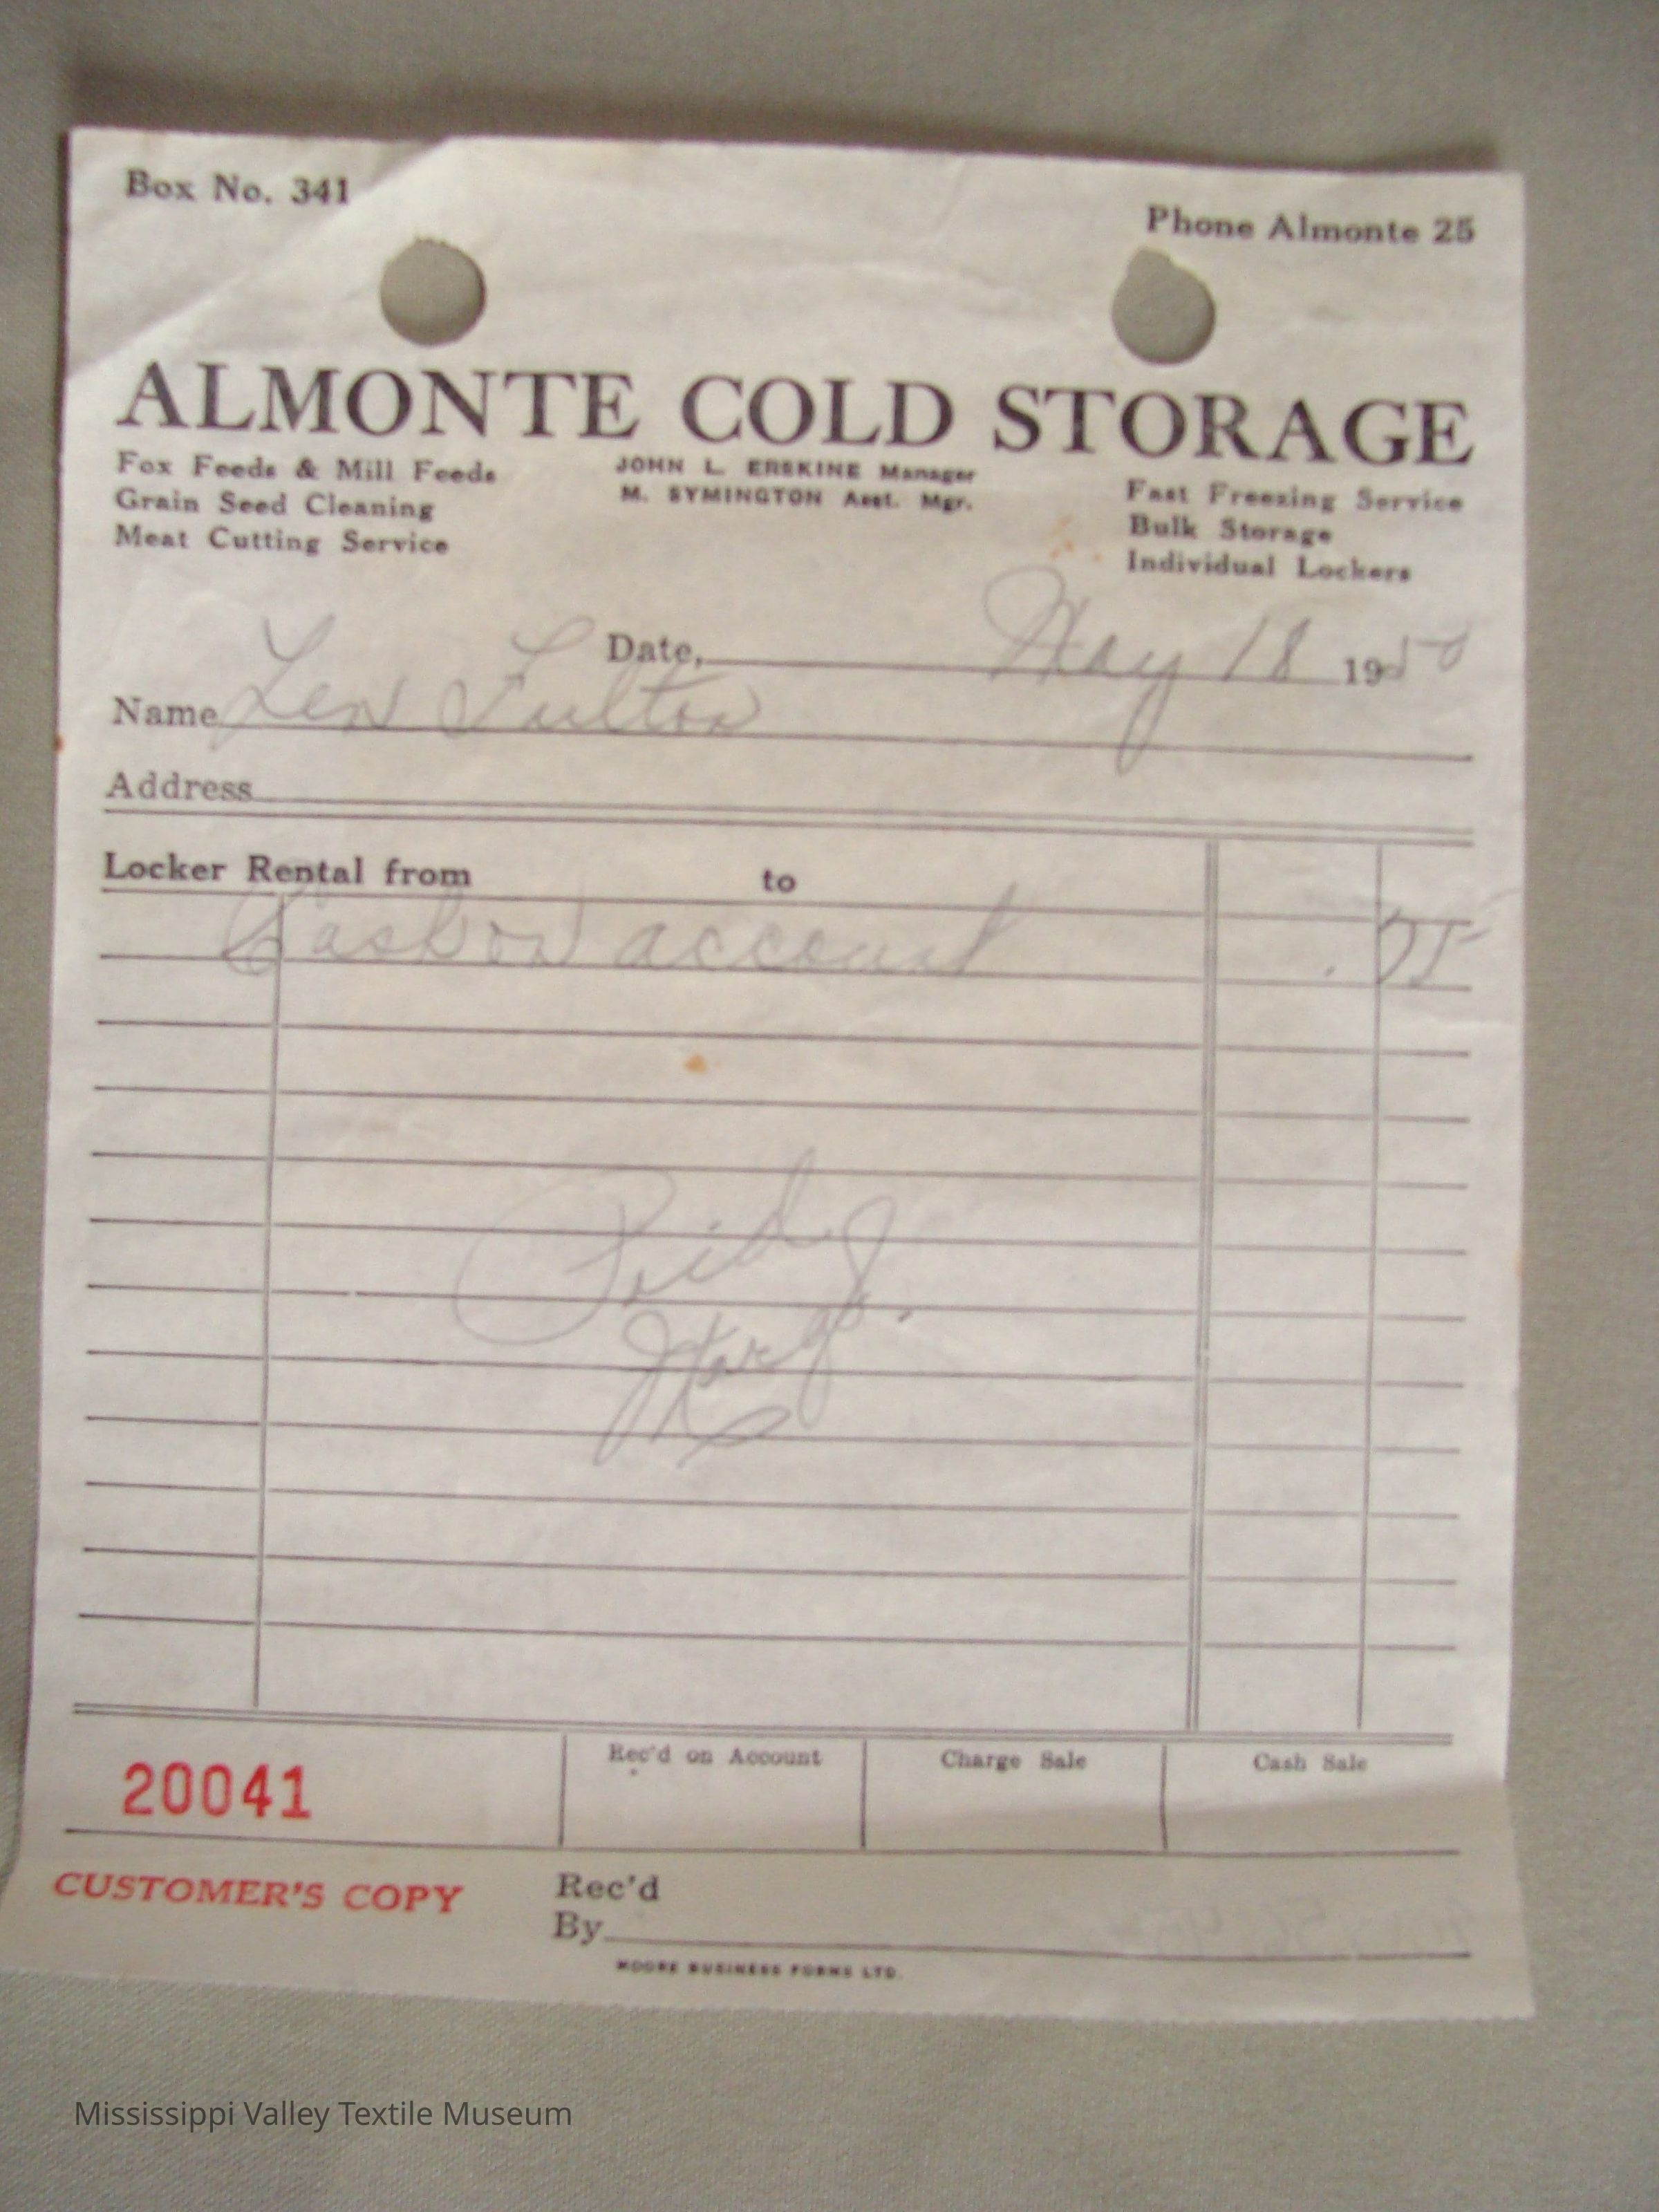 Box No. 341
Phone Almonte 25
ALMONTE COLD STORAGE
Fox Feeds & Mill Feeds
Grain Seed Cleaning
Meat Cutting Service
JOHN L. ERSKINE Manager
M. SYMINGTON Asst. Mgr.
Fast Freezing Service
Bulk Storage
Individual Lockers
Date, May 18 1950
Name Len Fulton
Address
Locker Rental from to
Cash on account .75
Paid
20041
Rec'd on Account
Charge Sale
Cash Sale
CUSTOMER'S COPY
Rec'd
By
MOORE BUSINESS FORMS LTD.
Mississippi Valley Textile Museum